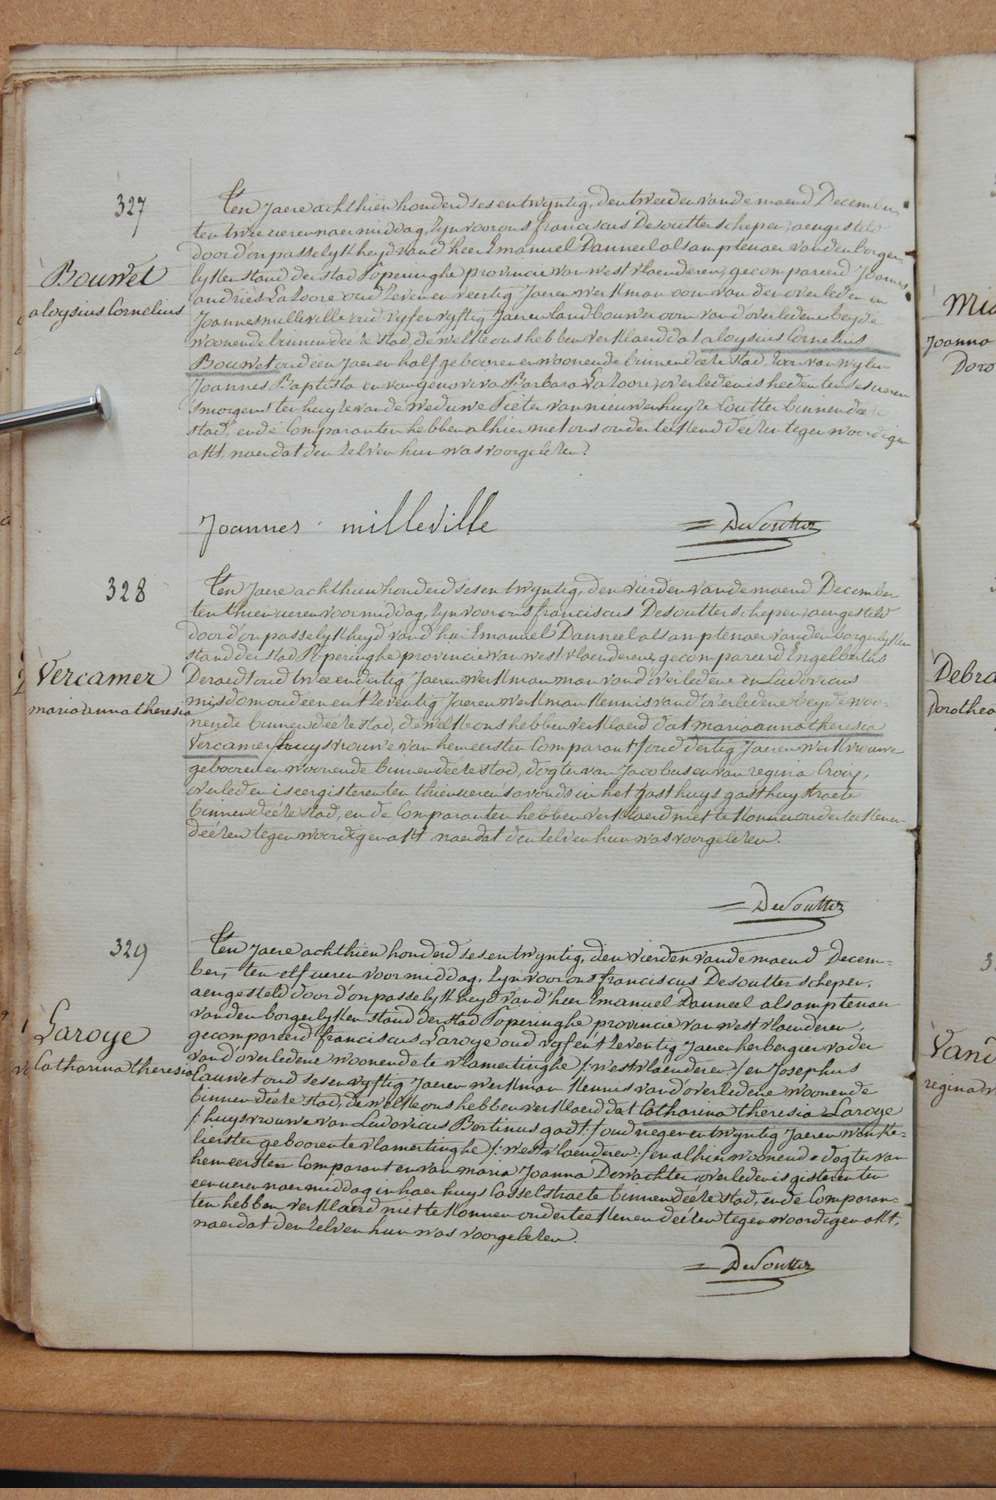 327
Bouwet
aloysius Cornelius
Ten Jaere achthien honderd ses en twyntig, den tweeden van de maend December
ten twee ueren naer middag, zyn voor ons franciscus Desoutter schepen, aengesteld
door d'onpasselykheyd van d'heer Emanuel Danneel als amptenaer van den borger-
lyken stand der stad Poperinghe provincie van westvlaenderen, gecompareerd Joannes
andries Lazoore oud zeven en veertig Jaeren werkman oom van den overledenen en
Joannes milleville oud vyf en vyftig Jaeren landbouwer oom van d'overledenen beyde
woonende binnen deeze stad, de welke ons hebben verklaerd dat aloysius Cornelius
Bouwet oud een Jaer en half geboren en woonende binnen deeze stad, zoon van wylen
Joannes Baptista en van genoveva Barbara Lazoore, overleden is heden ten ses ueren
smorgens ten huyze van de weduwe Pieter van nieuwenhuyze Coutter binnen deeze
stad, en de Comparanten hebben alhier met ons onderteekend deezen tegenwoordigen
akt, naer dat den zelven hun was voorgelezen?
Joannes milleville
Desoutter
328
Vercamer
maria anna theresia
Ten Jaere achthien honderd ses en twyntig, den vierden van de maend December
ten thien ueren voormiddag, zyn voor ons franciscus Desoutter schepen, aengesteld
door d'onpasselykheyd van d'heer Emanuel Danneel als amptenaer van den borgerlyken
stand der stad Poperinghe provincie van westvlaenderen, gecompareerd Engelbertus
Deraedt oud twee en dertig Jaeren werkman man van d'overledene en Ludovicus
misdom oud een en tzeventig Jaeren werkman kennis van d'overledene beyde woo-
nende binnen deeze stad, de welke ons hebben verklaerd dat maria anna theresia
Vercamer /: huysvrouwe van hem eersten Comparant :/ oud dertig Jaeren werkvrouwe
geboren en woonende binnen deeze stad, dogter van Jacobus en van regina Croix,
overleden is eergisteren ten thien ueren s'avonds in het gasthuys gasthuystraete
binnen deeze stad, en de Comparanten hebben verklaerd niet te konnen onderteekenen
deézen tegenwoordigen akt naer dat den zelven hun was voorgelezen.
Desoutter
329
Laroye
Catharina theresia
Ten Jaere achthien honderd ses en twyntig, den vierden van de maend Decem-
ber, ten elf ueren voormiddag, zyn voor ons franciscus Desoutter schepen,
aengesteld door d'onpasselykheyd van d'heer Emanuel Danneel als amptenaer
van den borgerlyken stand der stad Poperinghe provincie van westvlaenderen,
gecompareerd franciscus Laroye oud vyf en tzeventig Jaeren herbergier vader
van d'overledene woonende te vlamertinghe /: westvlaenderen :/ en Josephus
Cauwet oud ses en vyftig Jaeren werkman kennis van d'overledene woonende
binnen deeze stad, de welke ons hebben verklaerd dat Catharina theresia Laroye
/: huysvrouwe van Ludovicus Bortinus gadt :/ oud negen en twyntig Jaeren winke-
lierster geboren te vlamertinghe /: westvlaenderen :/ en alhier woonende dogter van
hem eersten Comparant en van maria Joanna Dewachter, overleden is gisteren ten
een ueren naermiddag in haer huys Casselstraete binnen deeze stad, en de Comparan-
ten hebben verklaerd niet te konnen onderteekenen deézen tegenwoordigen akt,
naer dat den zelven hun was voorgelezen.
Desoutter
Joanna
Doro
Debra
Dorothea
Vand